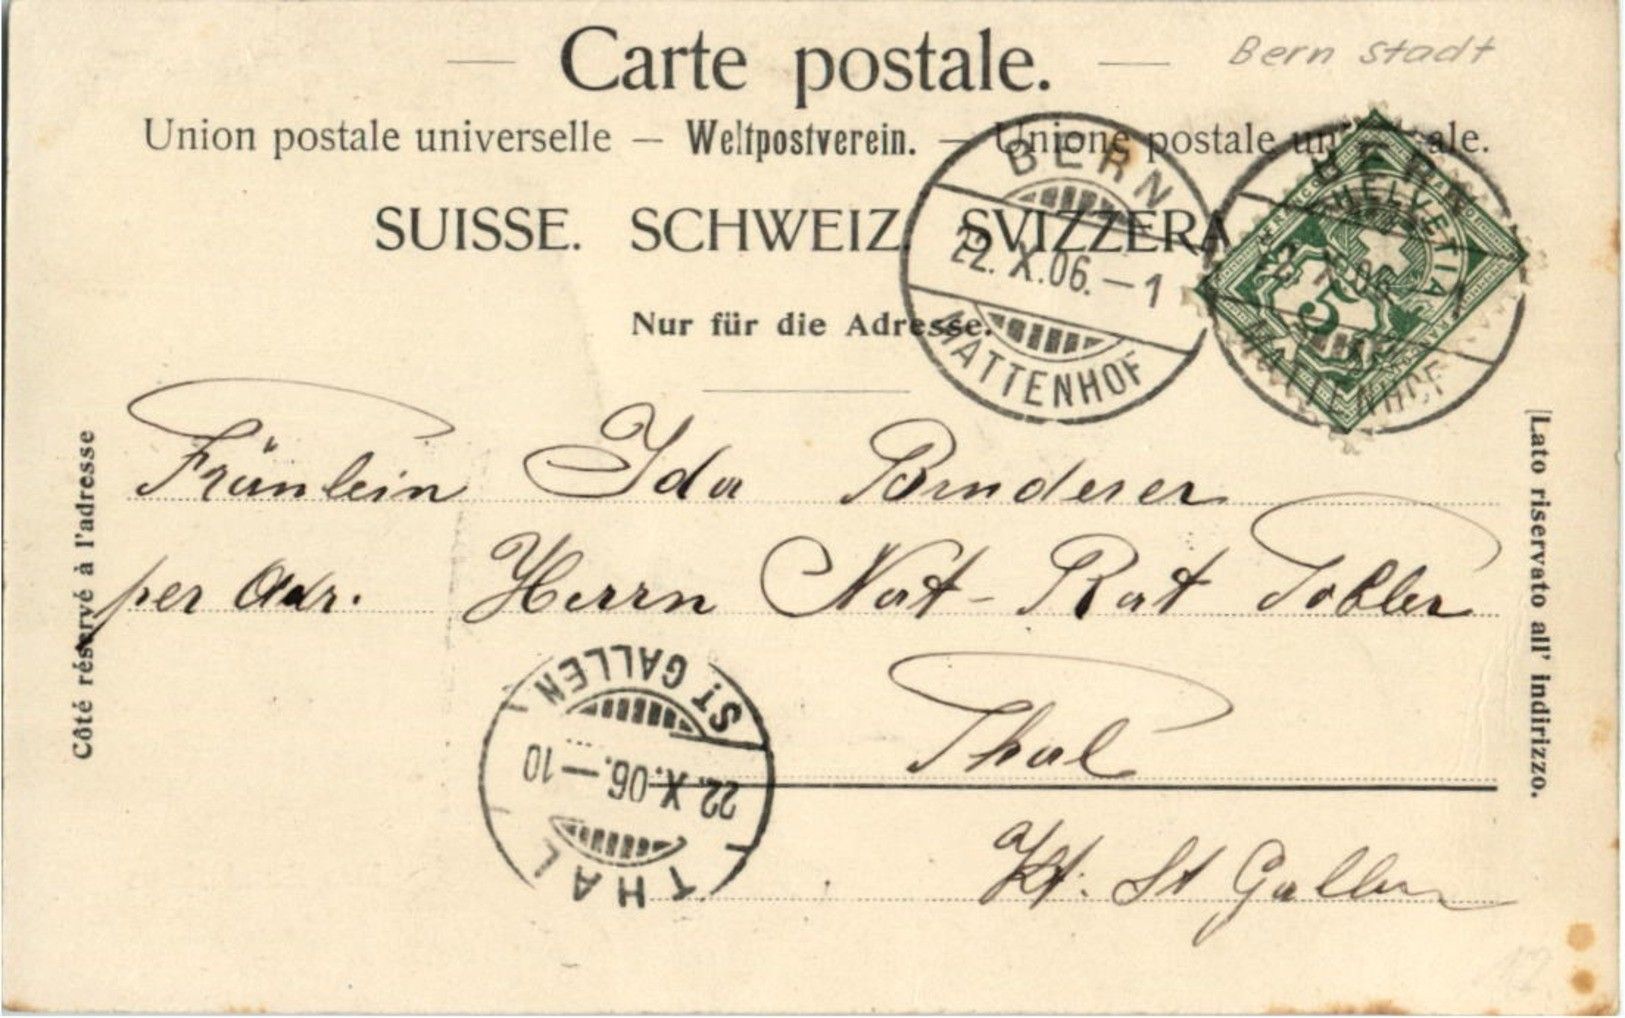 Bern Stadt
Carte postale.
Union postale universelle – Weltpostverein. – Unione postale un ale.
SUISSE. SCHWEIZ. SVIZZERA
Nur für die Adresse.
BERN
22.X.06.–1
MATTENHOF
BERN
MATTENHOF
HELVETIA
FRANCO
5
Côté réservé à l'adresse
Lato riservato all' indirizzo.
Fräulein Ida
per Adr. Herrn Nat-Rat Tobler
Thal
Kt. St Gallen
ST GALLEN
22.X.06.–10
THAL